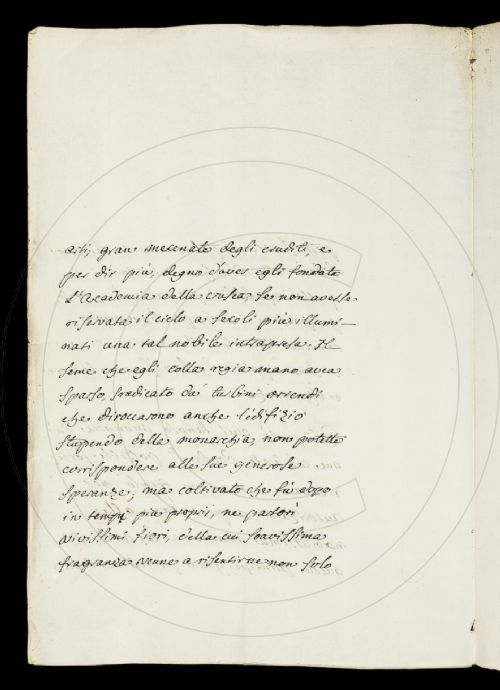 arti, gran mecenate degli eruditi, e
per dir più, degno d'aver egli fondate
L'Academia della crusca, se non avesse
riservata il cielo a secoli più illumi-
nati una tal nobile intrapresa. Il
seme che egli colla regia mano avea
sparso, sradicato da' turbini orrendi
che diroccarono anche l'edifizio
stupendo della monarchia, non potette
corrispondere alle sue generose
speranze; ma coltivato che fù dopo
in tempi più proprii, ne partorì
vivissimi fiori, della cui soavissima
fragranza venne a risentirne non solo